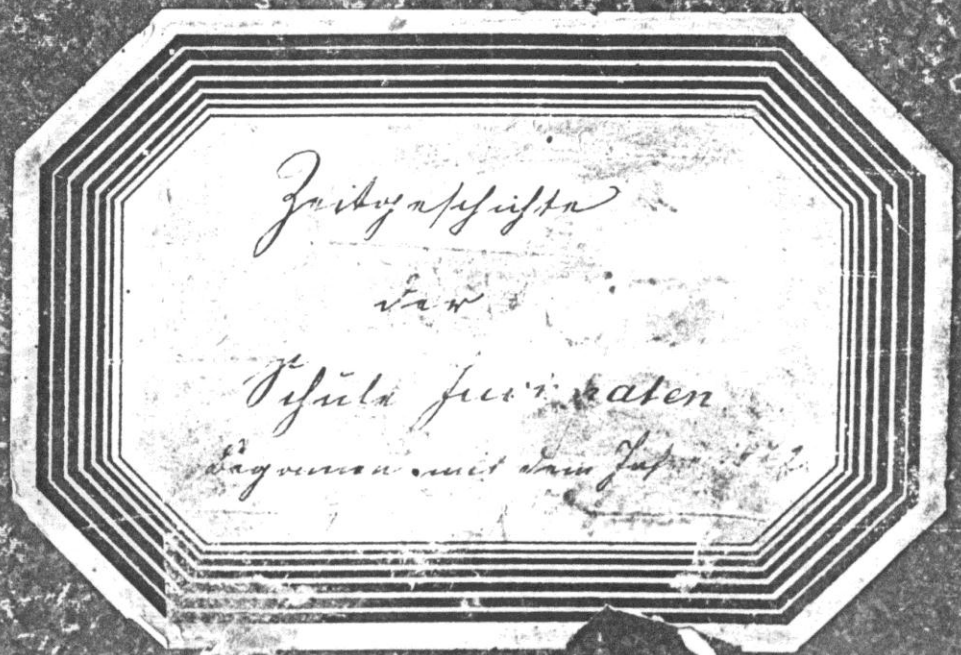 Zeitgeschichte
der
Schule
begonnen mit dem Jahre